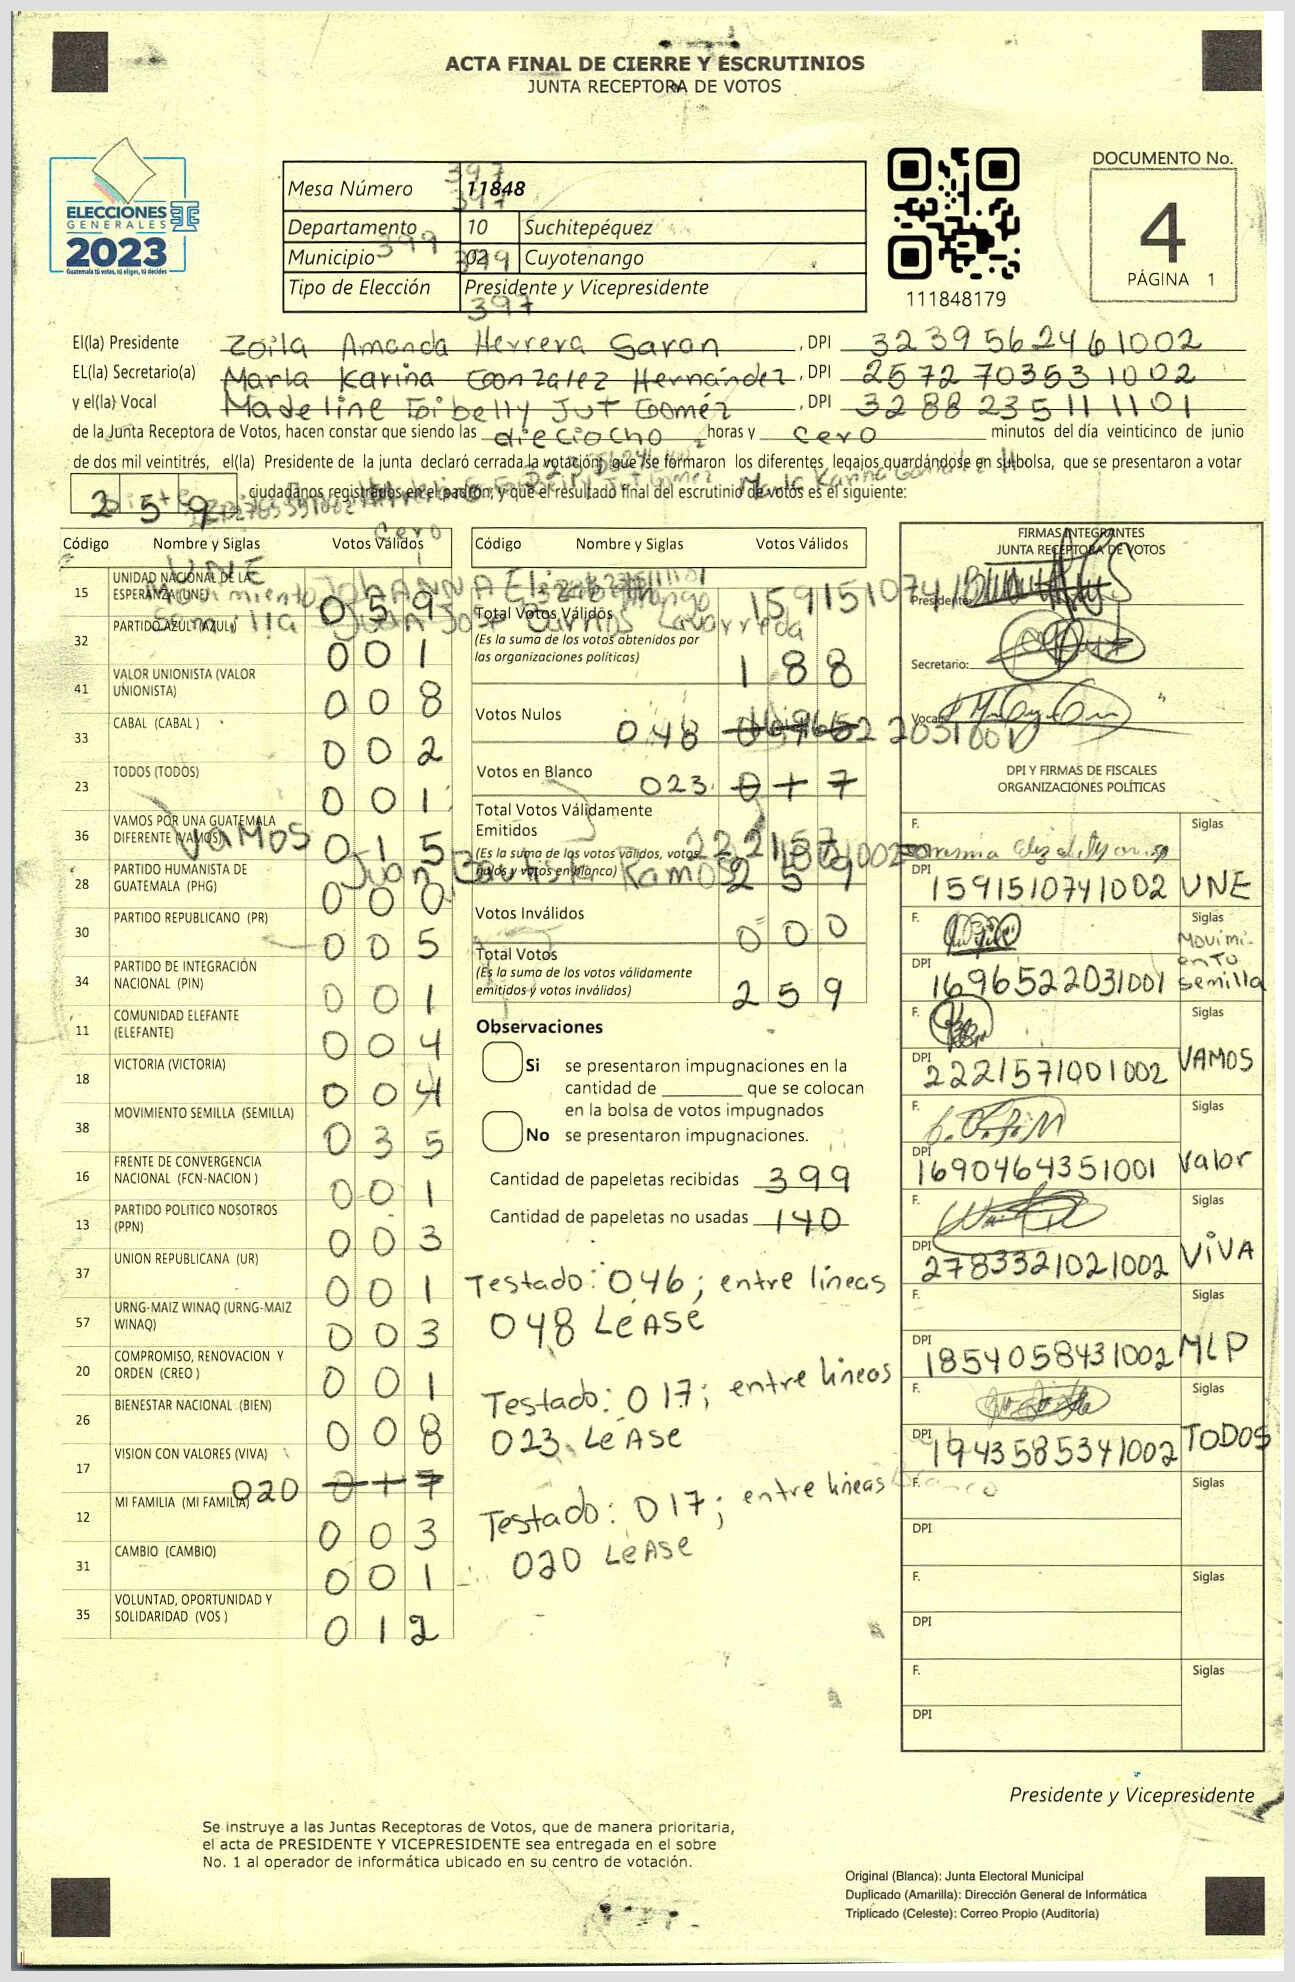 ACTA FINAL DE CIERRE Y ESCRUTINIOS
JUNTA RECEPTORA DE VOTOS
ELECCIONES
GENERALES
2023
Guatemala tú votas, tú eliges, tú decides
Mesa Número 11848
Departamento 10 Suchitepéquez
Municipio 02 Cuyotenango
Tipo de Elección Presidente y Vicepresidente
397
397
399
399
397
111848179
DOCUMENTO No.
4
PÁGINA 1
El(la) Presidente Zoila Amanda Herrera Saran, DPI 3239562461002
EL(la) Secretario(a) Marla Karina Gonzalez Hernández, DPI 2572703531002
y el(la) Vocal Madeline Jut Gómez, DPI 3288235111101
de la Junta Receptora de Votos, hacen constar que siendo las dieciocho horas y cero minutos del día veinticinco de junio
de dos mil veintitrés, el(la) Presidente de la junta declaró cerrada la votación; que se formaron los diferentes legajos guardándose en su bolsa, que se presentaron a votar
259 ciudadanos registrados en el padrón, y que el resultado final del escrutinio de votos es el siguiente:
cero
Código Nombre y Siglas Votos Válidos
15 UNIDAD NACIONAL DE LA ESPERANZA (UNE) 059
32 PARTIDO AZUL (AZUL) 001
41 VALOR UNIONISTA (VALOR UNIONISTA) 008
33 CABAL (CABAL ) 002
23 TODOS (TODOS) 001
36 VAMOS POR UNA GUATEMALA DIFERENTE (VAMOS) 015
28 PARTIDO HUMANISTA DE GUATEMALA (PHG) 000
30 PARTIDO REPUBLICANO (PR) 005
34 PARTIDO DE INTEGRACIÓN NACIONAL (PIN) 001
11 COMUNIDAD ELEFANTE (ELEFANTE) 004
18 VICTORIA (VICTORIA) 004
38 MOVIMIENTO SEMILLA (SEMILLA) 035
16 FRENTE DE CONVERGENCIA NACIONAL (FCN-NACION ) 001
13 PARTIDO POLITICO NOSOTROS (PPN) 003
37 UNION REPUBLICANA (UR) 001
57 URNG-MAIZ WINAQ (URNG-MAIZ WINAQ) 003
20 COMPROMISO, RENOVACION Y ORDEN (CREO ) 001
26 BIENESTAR NACIONAL (BIEN) 008
17 VISION CON VALORES (VIVA) 020 017
12 MI FAMILIA (MI FAMILIA) 003
31 CAMBIO (CAMBIO) 001
35 VOLUNTAD, OPORTUNIDAD Y SOLIDARIDAD (VOS ) 012
UNE
VAMOS
Juan Bautista Ramos
Código Nombre y Siglas Votos Válidos
Total Votos Válidos
(Es la suma de los votos obtenidos por
las organizaciones políticas) 188
Votos Nulos 048
Votos en Blanco 023 017
Total Votos Válidamente
Emitidos
(Es la suma de los votos válidos, votos
nulos y votos en blanco) 259
Votos Inválidos 000
Total Votos
(Es la suma de los votos válidamente
emitidos y votos inválidos) 259
Observaciones
Si se presentaron impugnaciones en la
cantidad de ________ que se colocan
en la bolsa de votos impugnados
No se presentaron impugnaciones.
Cantidad de papeletas recibidas 399
Cantidad de papeletas no usadas 140
Testado: 046; entre líneas
048 LéASE
Testado: 017; entre líneas
023 LéASE
Testado: 017; entre líneas
020 LéASE
FIRMAS INTEGRANTES
JUNTA RECEPTORA DE VOTOS
Presidente:
Secretario:
Vocal
DPI Y FIRMAS DE FISCALES
ORGANIZACIONES POLÍTICAS
F. Siglas
DPI 1591510741002 UNE
F. Siglas
DPI 1696522031001 Movimiento semilla
F. Siglas
DPI 2221571001002 VAMOS
F. Siglas
DPI 1690464351001 Valor
F. Siglas
DPI 2783321021002 ViVA
F. Siglas
DPI 1854058431002 MLP
F. Siglas
DPI 1943585341002 TODOS
F. Siglas
DPI
F. Siglas
DPI
F. Siglas
DPI
Presidente y Vicepresidente
Se instruye a las Juntas Receptoras de Votos, que de manera prioritaria,
el acta de PRESIDENTE Y VICEPRESIDENTE sea entregada en el sobre
No. 1 al operador de informática ubicado en su centro de votación.
Original (Blanca): Junta Electoral Municipal
Duplicado (Amarilla): Dirección General de Informática
Triplicado (Celeste): Correo Propio (Auditoría)